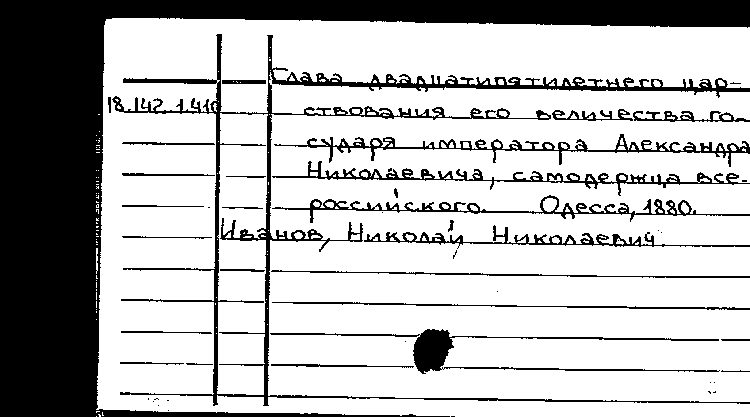 Глава двадцатипятилетнего цар-
18.142.1.410 ствования его величества го-
сударя императора Александра
Николаевича, самодержца все-
российского. Одесса, 1880.
Иванов, Николай Николаевич.